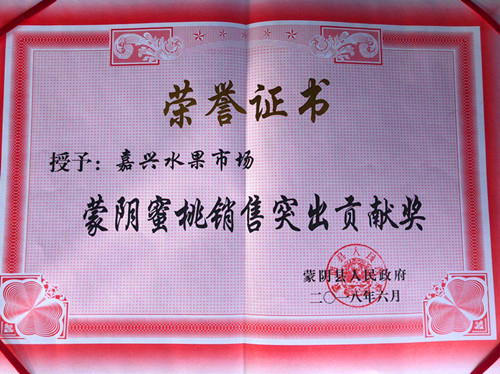 荣誉证书
授予：嘉兴水果市场
蒙阴蜜桃销售突出贡献奖
蒙阴县人民政府
二〇一八年六月